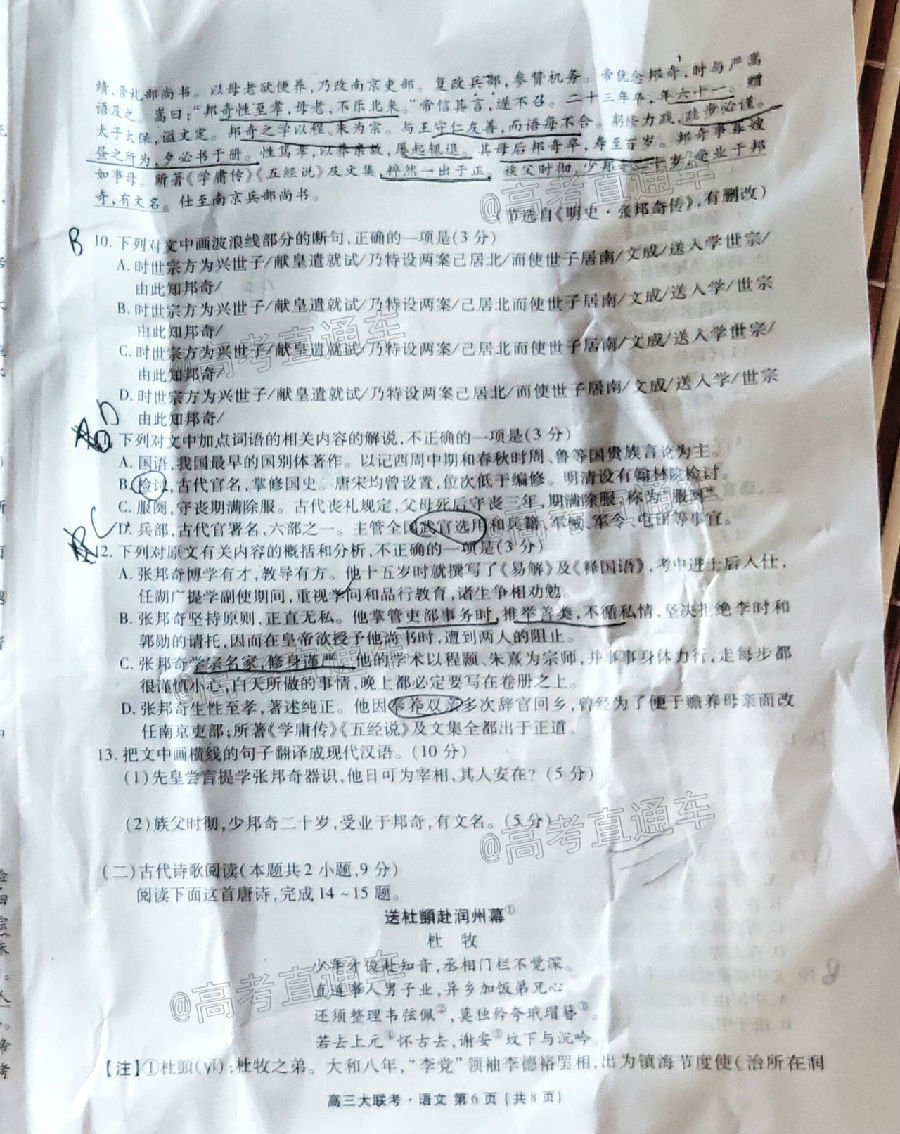 绩,晋礼部尚书。以母老欲便养,乃改南京吏部。复改兵部,参赞机务。帝犹念邦奇,时与严嵩
语及之。嵩曰:“邦奇性至孝,母老,不乐北来。”帝信其言,遂不召。二十三年卒,年六十一。赠
太子太保,谥文定。邦奇之学以程、朱为宗。与王守仁友善,而语每不合。躬修力践,跬步必谨。
昼之所为,夕必书于册。性笃孝,以养亲故,屡起辄退。其母后邦奇卒,寿至百岁。邦奇事寡嫂
如事母。所著《学庸传》《五经说》及文集,粹然一出于正。族父时彻,少邦奇二十岁,受业于邦
奇,有文名。仕至南京兵部尚书。
(节选自《明史·张邦奇传》,有删改)
B 10. 下列对文中画波浪线部分的断句,正确的一项是(3 分)
A. 时世宗方为兴世子/献皇遣就试/乃特设两案己居北/而使世子居南/文成/送入学世宗/
由此知邦奇/
B. 时世宗方为兴世子/献皇遣就试/乃特设两案/己居北而使世子居南/文成/送入学/世宗
由此知邦奇/
C. 时世宗方为兴世子/献皇遣就试/乃特设两案/己居北而使世子居南/文成/送入学世宗/
由此知邦奇/
D. 时世宗方为兴世子/献皇遣就试/乃特设两案己居北/而使世子居南/文成/送入学/世宗
由此知邦奇/
D 下列对文中加点词语的相关内容的解说,不正确的一项是(3 分)
A. 国语,我国最早的国别体著作。以记西周中期和春秋时周、鲁等国贵族言论为主。
B. 检讨,古代官名,掌修国史。唐宋均曾设置,位次低于编修。明清设有翰林院检讨。
C. 服阕,守丧期满除服。古代丧礼规定,父母死后守丧三年,期满除服,称为“服阕”。
D. 兵部,古代官署名,六部之一。主管全国武官选用和兵籍、军械、军令、屯田等事宜。
C 2. 下列对原文有关内容的概括和分析,不正确的一项是(3 分)
A. 张邦奇博学有才,教导有方。他十五岁时就撰写了《易解》及《释国语》,考中进士后入仕,
任湖广提学副使期间,重视学问和品行教育,诸生争相劝勉。
B. 张邦奇坚持原则,正直无私。他掌管吏部事务时,推举善类,不循私情,坚决拒绝李时和
郭勋的请托,因而在皇帝欲授予他尚书时,遭到两人的阻止。
C. 张邦奇学宗名家,修身谨严。他的学术以程颐、朱熹为宗师,并事事身体力行,走每步都
很谨慎小心,白天所做的事情,晚上都必定要写在卷册之上。
D. 张邦奇生性至孝,著述纯正。他因奉养双亲多次辞官回乡,曾经为了便于赡养母亲而改
任南京吏部;所著《学庸传》《五经说》及文集全都出于正道。
13. 把文中画横线的句子翻译成现代汉语。(10 分)
(1)先皇尝言提学张邦奇器识,他日可为宰相,其人安在?(5 分)
(2)族父时彻,少邦奇二十岁,受业于邦奇,有文名。(5 分)
(二)古代诗歌阅读(本题共2 小题,9 分)
阅读下面这首唐诗,完成 14~15 题。
送杜顗赴润州幕①
杜 牧
少年才俊赴知音,丞相门栏不觉深。
直道事人男子业,异乡加饭弟兄心。
还须整理韦弦佩②,莫独矜夸玳瑁簪③。
若去上元④怀古去,谢安⑤坟下与沉吟。
【注】①杜顗(yǐ):杜牧之弟。大和八年,“李党”领袖李德裕罢相,出为镇海节度使(治所在润
高三大联考·语文 第 6 页(共 8 页)
@高考直通车
@高考直通车
@高考直通车
@高考直通车